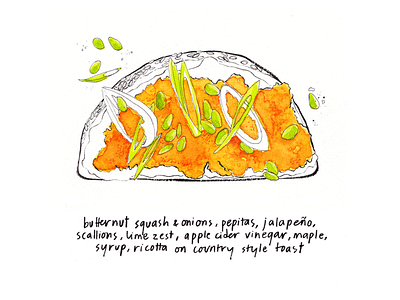 butternut squash & onions, pepitas, jalapeño,
scallions, lime zest, apple cider vinegar, maple,
syrup, ricotta on country style toast